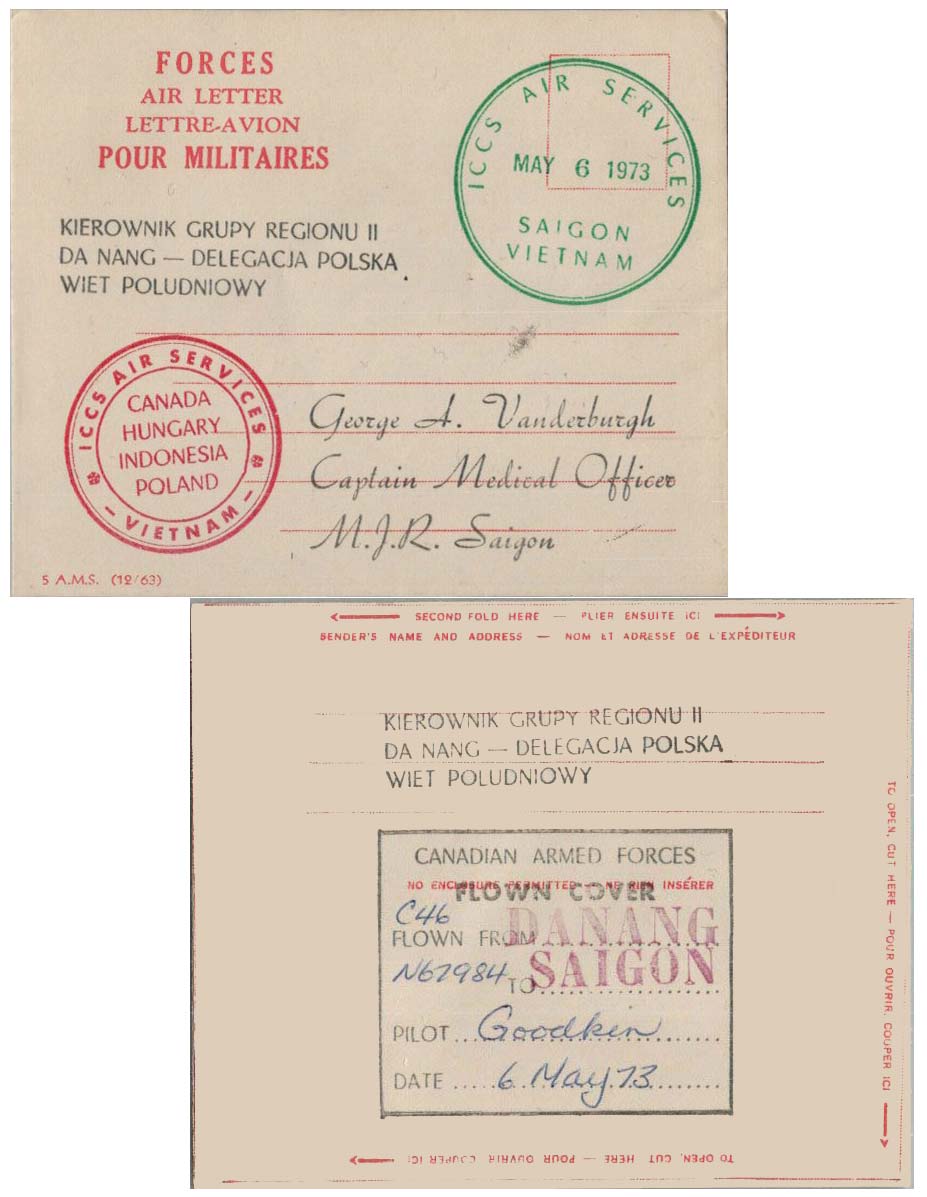 FORCES
AIR LETTER
LETTRE-AVION
POUR MILITAIRES
ICCS AIR SERVICES
MAY 6 1973
SAIGON
VIETNAM
KIEROWNIK GRUPY REGIONU II
DA NANG — DELEGACJA POLSKA
WIET POLUDNIOWY
ICCS AIR SERVICES
CANADA
HUNGARY
INDONESIA
POLAND
– VIETNAM –
George A. Vanderburgh
Captain Medical Officer
M.J.R. Saigon
5 A.M.S. (12/63)
SECOND FOLD HERE — PLIER ENSUITE ICI
SENDER'S NAME AND ADDRESS — NOM ET ADRESSE DE L'EXPÉDITEUR
KIEROWNIK GRUPY REGIONU II
DA NANG — DELEGACJA POLSKA
WIET POLUDNIOWY
TO OPEN, CUT HERE — POUR OUVRIR, COUPER ICI
CANADIAN ARMED FORCES
NO ENCLOSURE PERMITTED — NE RIEN INSÉRER
FLOWN COVER
C46
FLOWN FROM DANANG
N67984 TO SAIGON
PILOT Goodkin
DATE 6 May 73
TO OPEN, CUT HERE — POUR OUVRIR COUPER ICI